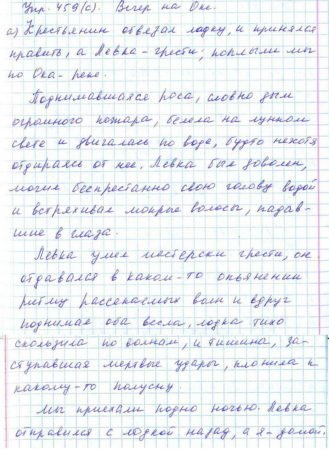 Упр. 459(с). Вечер на Оке.
а) Крестьянин отвязал лодку, и принялся
править, а Левка - грести; поплыли мы
по Ока-реке.
Поднимавшаяся роса, словно дым
огромного пожара, белела на лунном
свете и двигалась по воде, будто нехотя
отдираясь от нее. Левка был доволен,
мочил беспрестанно свою голову водой
и встряхивал мокрые волосы, падав-
шие в глаза.
Левка умел мастерски грести, он
отдавался в каком-то опьянении
ритму рассекаемых волн и вдруг
поднимал оба весла, лодка тихо
скользила по волнам, и тишина, за-
ступавшая мертвые удары, клонила к
какому-то полусну.
Мы приехали поздно ночью. Левка
отправился с лодкой назад, а я - домой.